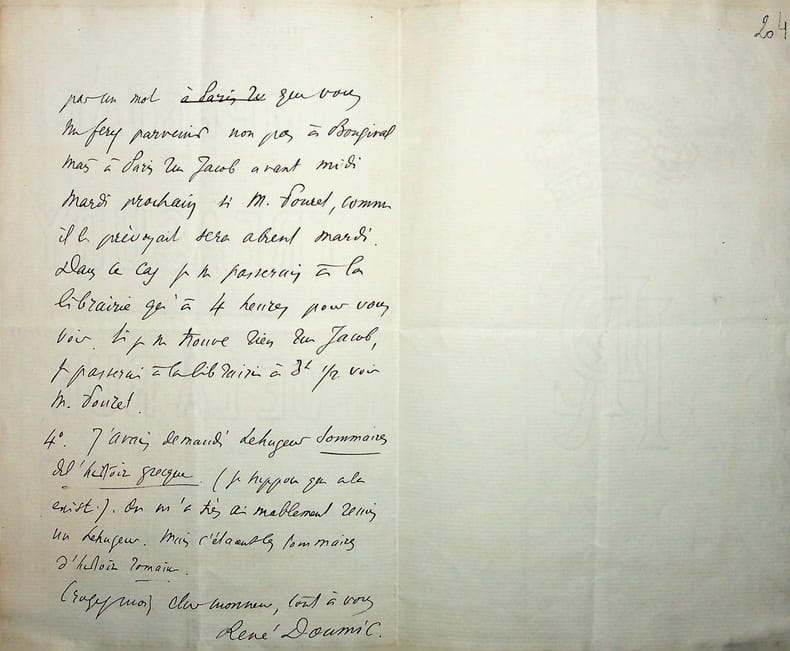 204
par un mot ~~à Paris ru~~ que vous
me ferez parvenir non pas à Bougival
mais à Paris rue Jacob avant midi
mardi prochain si M. Fouret, comme
il le prévoyait sera absent mardi.
Dans ce cas je ne passerais à la
librairie qu'à 4 heures pour vous
voir. Si je ne trouve rien rue Jacob,
je passerai à la librairie à 3h 1/2 voir
M. Fouret.
4°. J'avais demandé Lehugeur Sommaires
de l'histoire grecque. (je suppose que cela
existe). On m'a très aimablement remis
un Lehugeur. Mais c'étaient les sommaires
d'histoire romaine.
Croyez moi, cher monsieur, tout à vous
René Doumic.